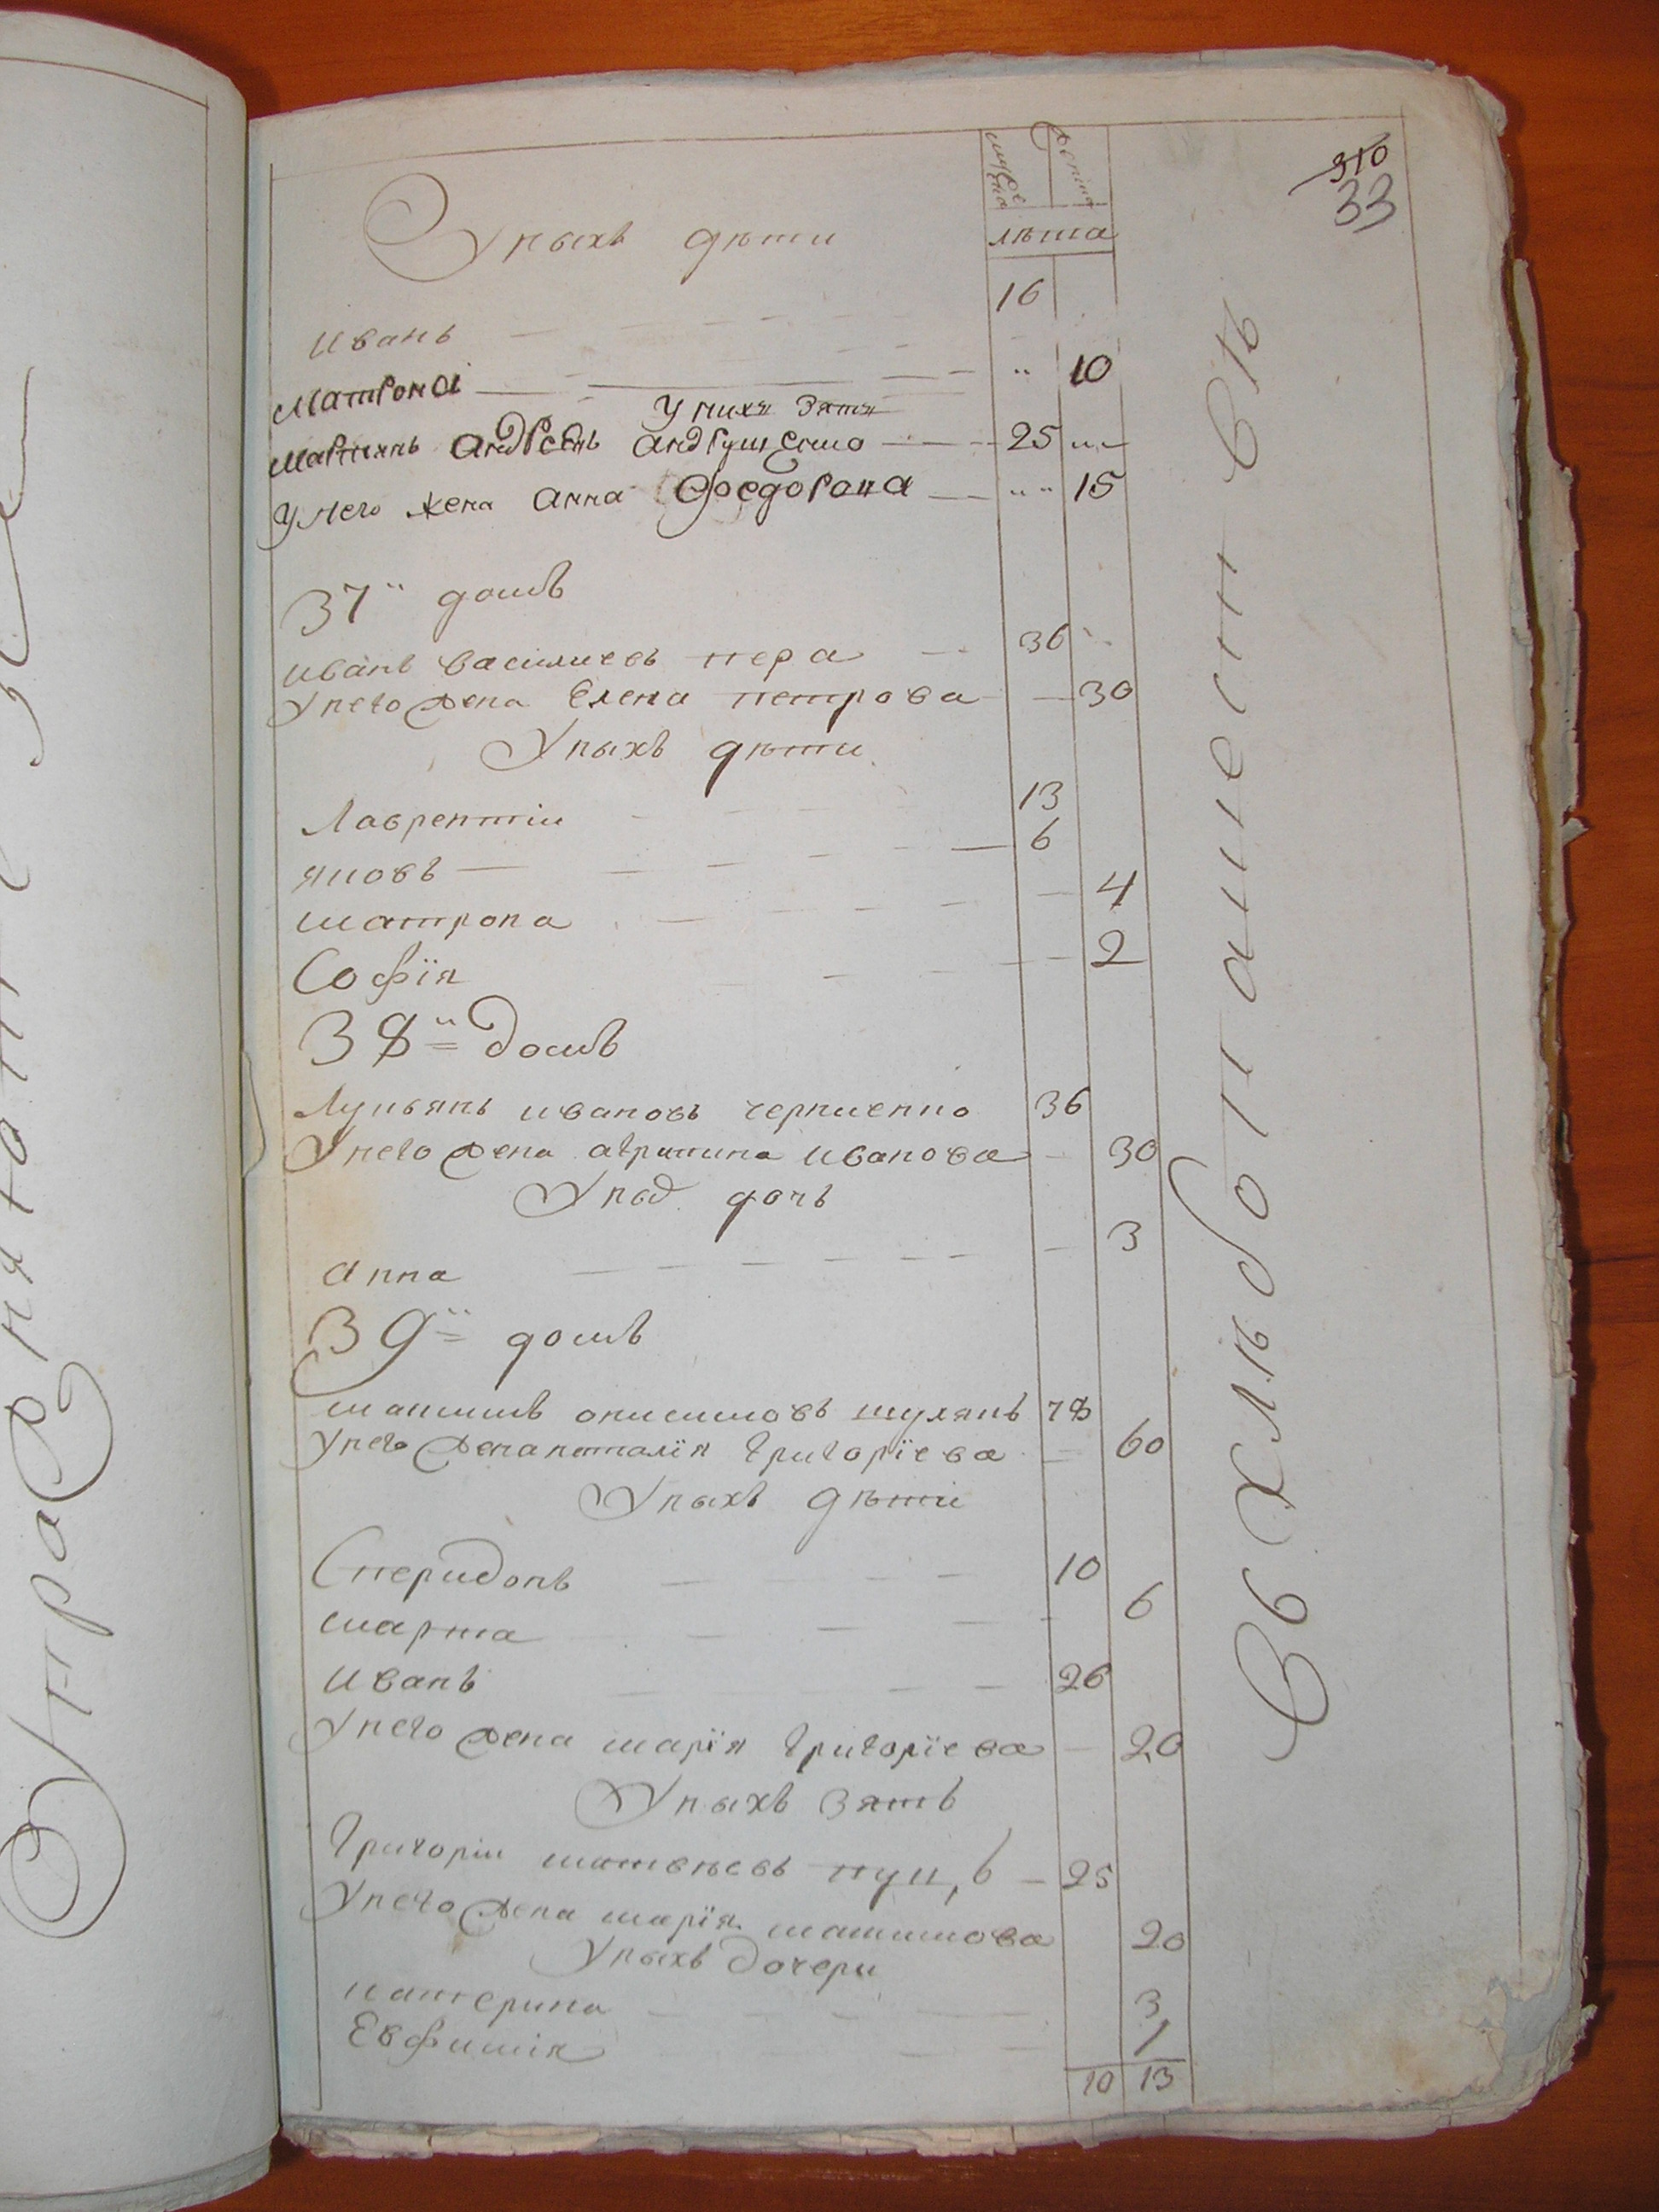 310
33
мужеска
женска
лѣта
У ныхъ дѣти
Иванъ 16
Матрона „ 10
У нихъ зять
Мартинъ Андреевъ Андрущенко 25 „
У него жена Анна Федорова „ 15
37й домъ
Иванъ Василиевъ пера 36
У него жена Елена петрова 30
У ныхъ дѣти
Лаврентїи 13
Яковъ 6
матрона 4
Софїя 2
38й домъ
Лукьянъ ивановъ черниенко 36
У него жена иванова 30
У ных дочь
Анна 3
39й домъ
максимъ онисимовъ шулякъ 78
У него жена наталїя григорїева 60
У ныхъ дѣти
Спередонъ 10
марта 6
Иванъ 26
У него жена марїя григорїева 20
У ныхъ зять
Григорїи матвѣевъ куц,ъ 25
У него жена марїя максимова 20
У ныхъ дочери
катерина 3
Евфимїя 1
10 13
Въ хлѣботашест вѣ